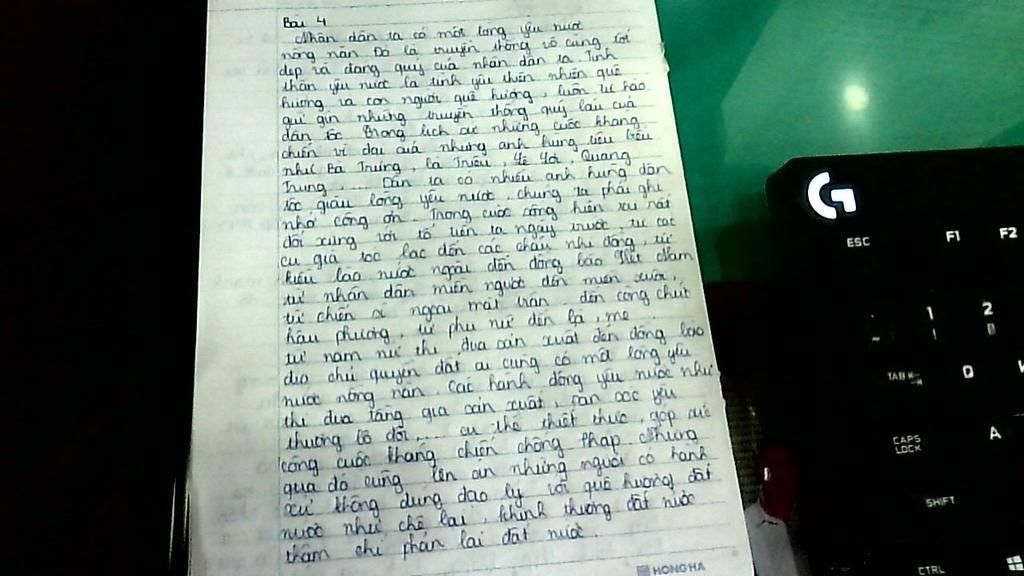 Bài 4
Nhân dân ta có một lòng yêu nước
nồng nàn. Đó là truyền thống vô cùng tốt
đẹp và đáng quý của nhân dân ta. Tinh
thần yêu nước là tình yêu thiên nhiên quê
hương và con người quê hương, luôn tự hào
giữ gìn những truyền thống quý báu của
dân tộc. Trong lịch sử những cuộc kháng
chiến vĩ đại của những anh hùng tiêu biểu
như Bà Trưng, bà Triệu, Lê Lợi, Quang
Trung, ... Dân ta có nhiều anh hùng dân
tộc giàu lòng yêu nước, chúng ta phải ghi
nhớ công ơn. Trong cuộc sống hiện
đối xứng với tổ tiên ta ngày trước, từ các
cụ già tóc bạc đến các cháu nhi đồng, từ
kiều bào nước ngoài đến đồng bào Việt Nam
từ nhân dân miền ngược đến miền xuôi,
từ chiến sĩ ngoài mặt trận đến công chức
hậu phương, từ phụ nữ đến bà, mẹ
từ nam nữ thi đua sản xuất đến đồng bào
điền chủ quyên đất ai cũng có một lòng yêu
nước nồng nàn. Các hành động yêu nước như
thi đua tăng gia sản xuất, săn sóc yêu
thương bộ đội, ... cụ thể thiết thực, góp sức
công cuộc kháng chiến chống Pháp. Nhưng
qua đó cũng lên án những người có hành
xử không đúng đạo lý với quê hương đất
nước như chê bai, khinh thường đất nước
thậm chí phản lại đất nước.
HONG HA
G
ESC F1 F2
1 2
!
TAB Q W
CAPS LOCK A
SHIFT
CTRL